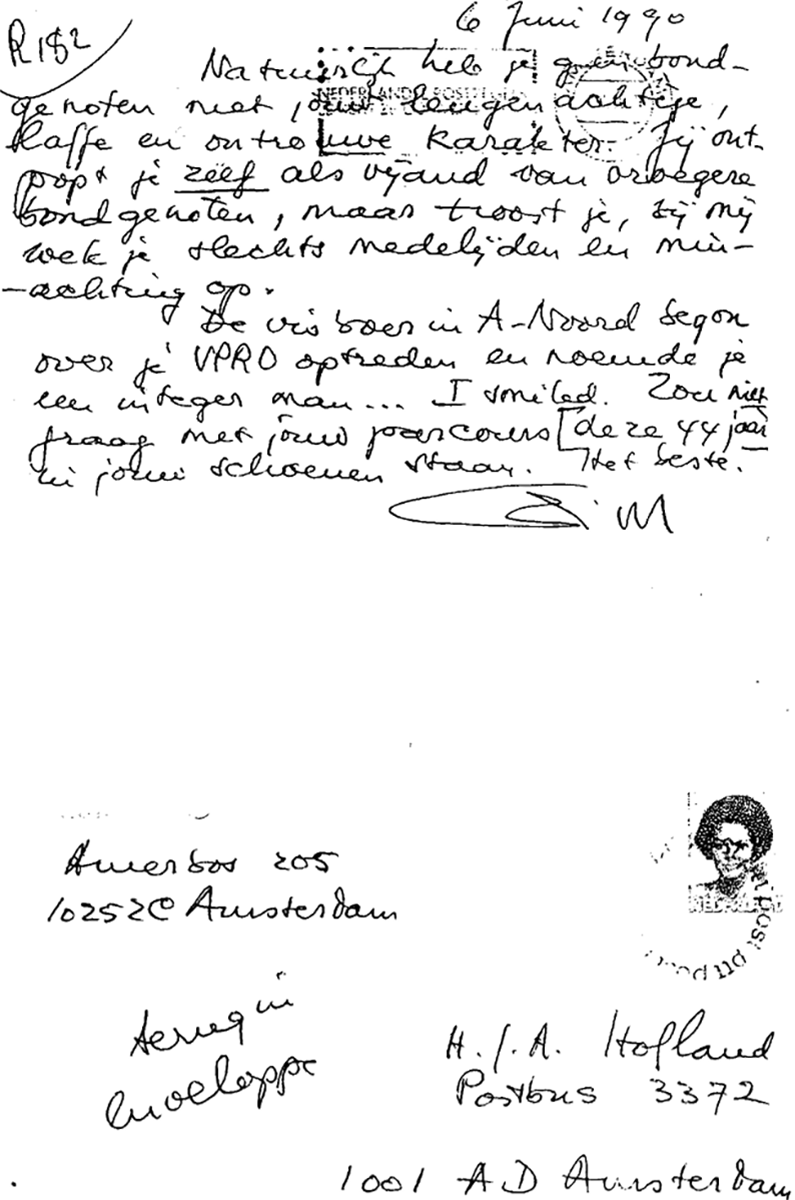 R182
6 Juni 1990
Natuurlijk heb je geen bond-
genoten met jouw leugenachtige,
laffe en ontrouwe karakter. Jij ont-
popt je zelf als vijand van vroegere
bondgenoten, maar troost je, bij mij
wek je slechts medelijden en min-
-achting op.
De visboer in A-Noord begon
over je VPRO optreden en noemde je
een integer man... I smiled. Zou niet
graag met jouw parcours [deze 44 jaar
in jouw schoenen staan. Het beste.
NEDERLAND
Amerbos 205
1025ZC Amsterdam
NEDERLAND
ptt post
terug in
enveloppe
H.J.A. Hofland
Postbus 3372
1001 AD Amsterdam